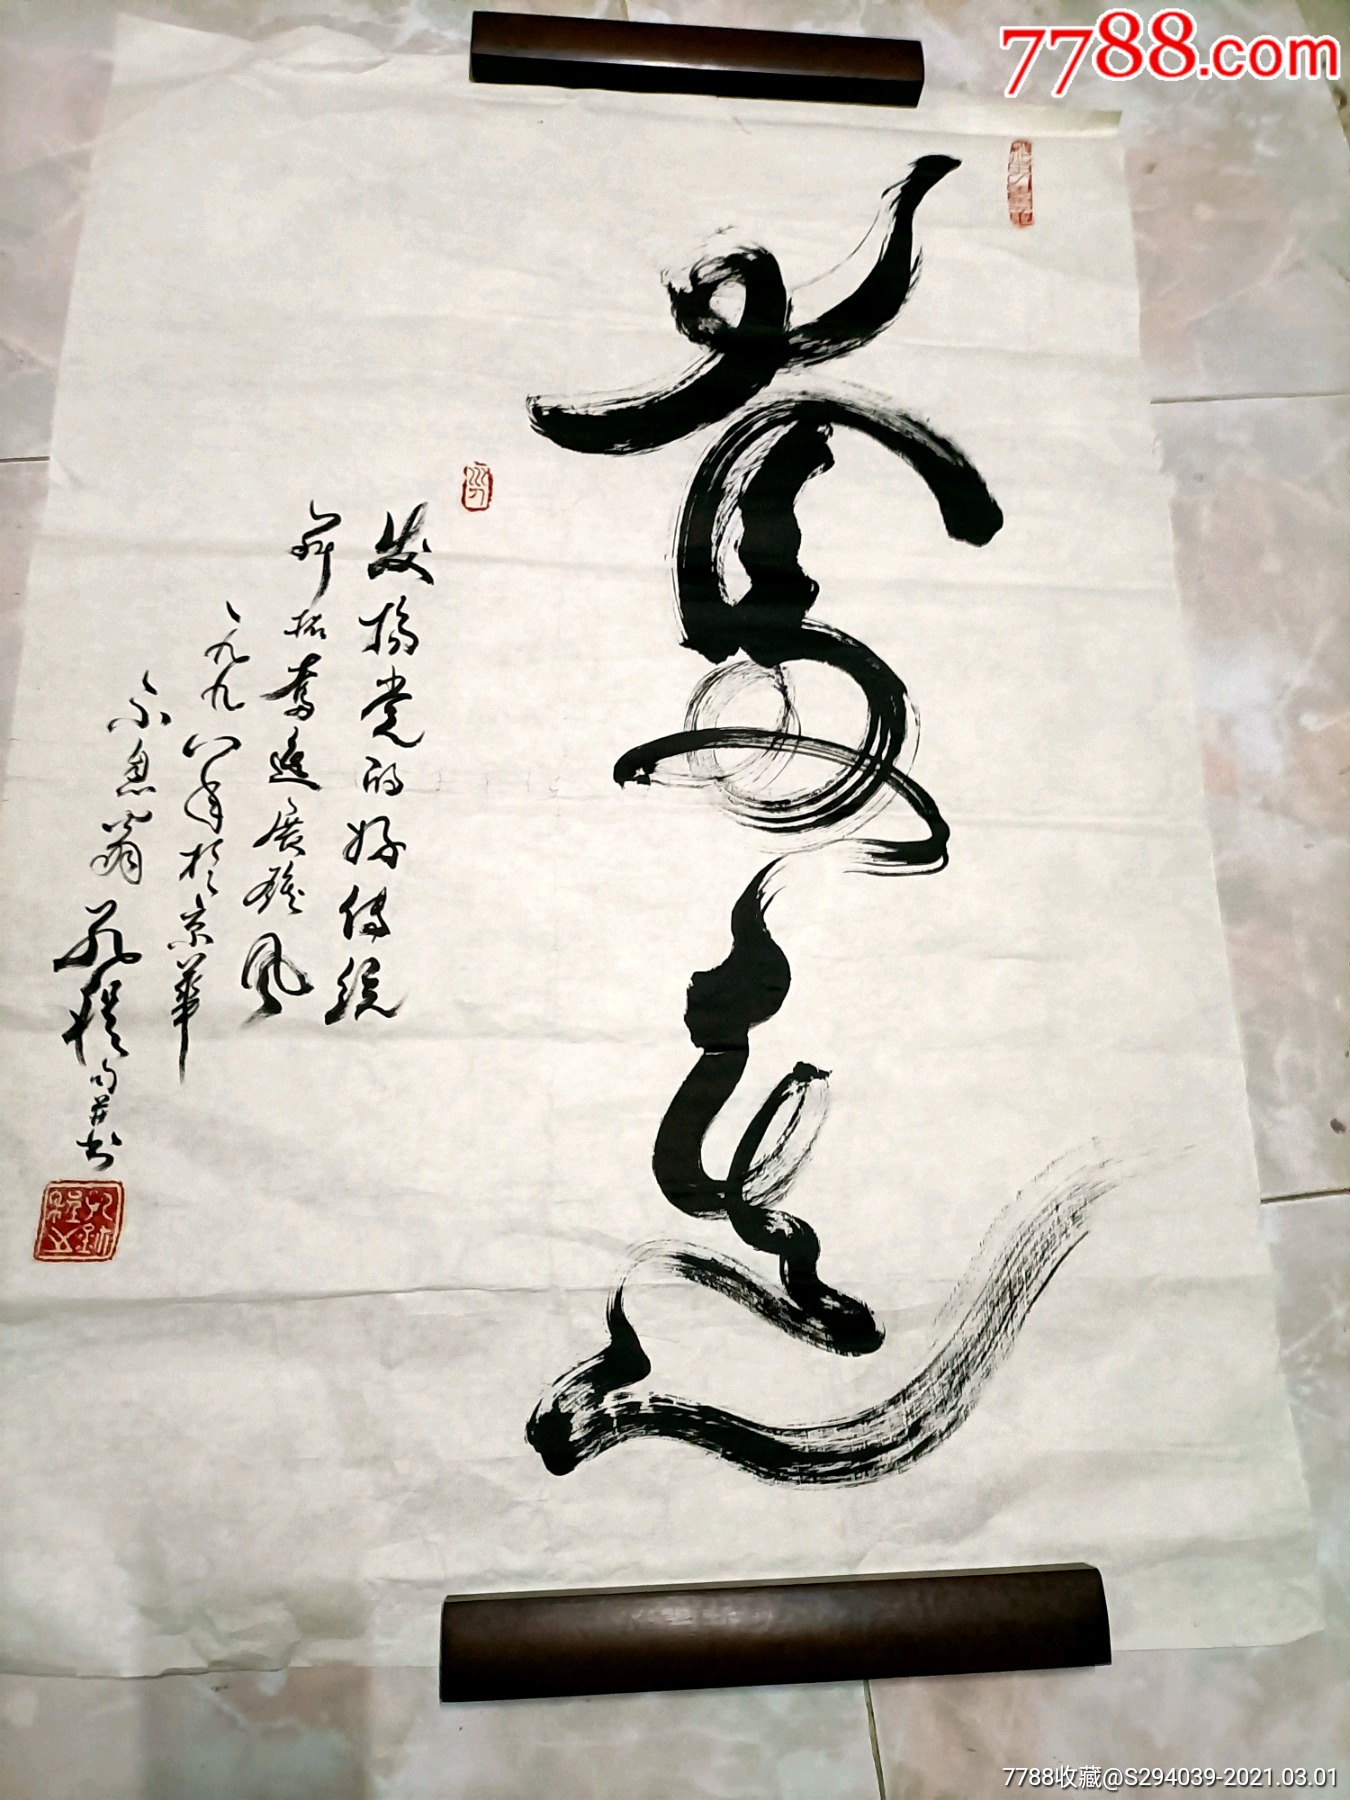 7788.com
奮進
发揚党的好传统
开拓奮進展雄风
一九九八年於京華
不息翁
7788收藏@S294039-2021.03.01